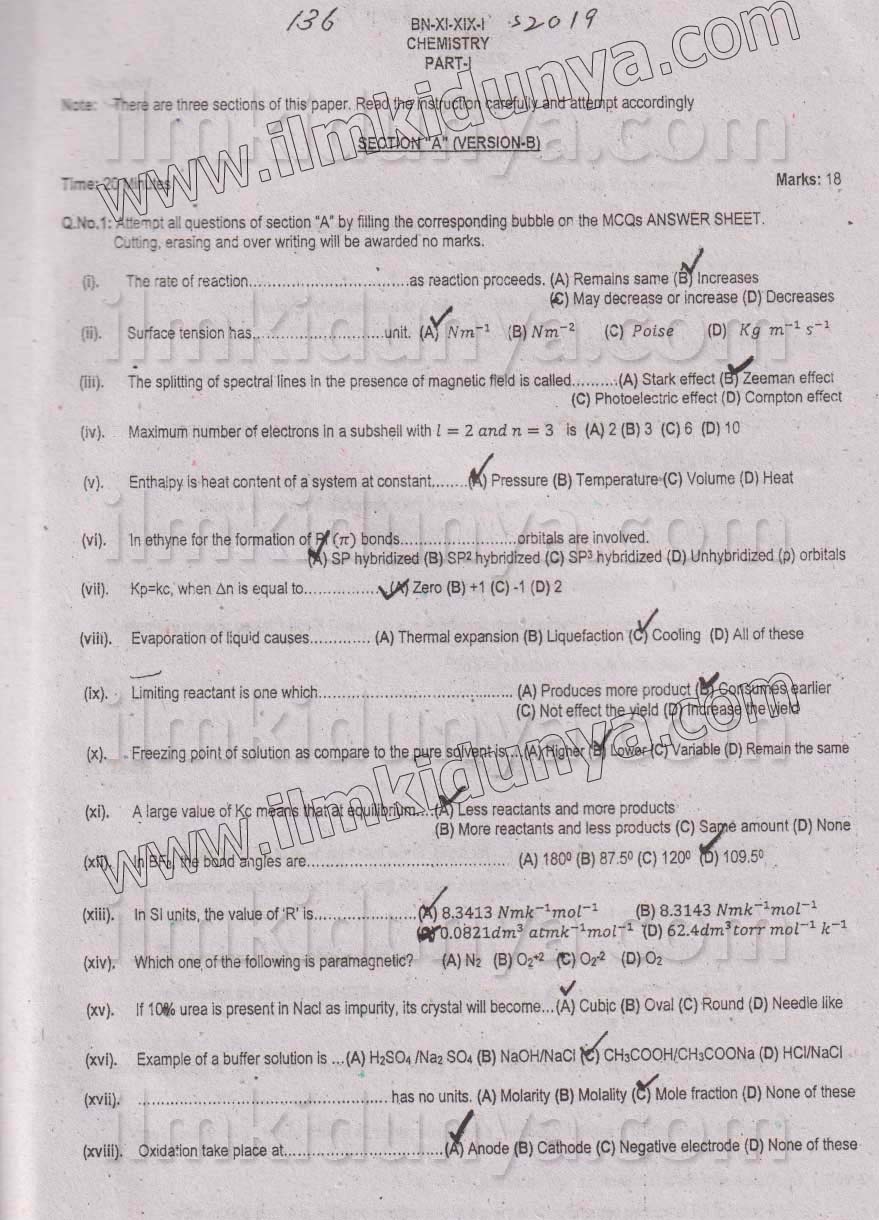 136 BN-XI-XIX-I S2019
CHEMISTRY
PART-I
Note: There are three sections of this paper. Read the instruction carefully and attempt accordingly
SECTION "A" (VERSION-B)
Time: 20 Minutes Marks: 18
Q.No.1: Attempt all questions of section "A" by filling the corresponding bubble on the MCQs ANSWER SHEET.
Cutting, erasing and over writing will be awarded no marks.
(i). The rate of reaction.................................as reaction proceeds. (A) Remains same (B) Increases
(C) May decrease or increase (D) Decreases
(ii). Surface tension has...........................unit. (A) Nm⁻¹ (B) Nm⁻² (C) Poise (D) Kg m⁻¹ s⁻¹
(iii). The splitting of spectral lines in the presence of magnetic field is called..........(A) Stark effect (B) Zeeman effect
(C) Photoelectric effect (D) Compton effect
(iv). Maximum number of electrons in a subshell with l = 2 and n = 3 is (A) 2 (B) 3 (C) 6 (D) 10
(v). Enthalpy is heat content of a system at constant........(A) Pressure (B) Temperature (C) Volume (D) Heat
(vi). In ethyne for the formation of Pi (π) bonds........................orbitals are involved.
(A) SP hybridized (B) SP² hybridized (C) SP³ hybridized (D) Unhybridized (p) orbitals
(vii). Kp=kc, when Δn is equal to.................(A) Zero (B) +1 (C) -1 (D) 2
(viii). Evaporation of liquid causes............. (A) Thermal expansion (B) Liquefaction (C) Cooling (D) All of these
(ix). Limiting reactant is one which......................................... (A) Produces more product (B) Consumes earlier
(C) Not effect the yield (D) Increase the yield
(x). Freezing point of solution as compare to the pure solvent is....(A) Higher (B) Lower (C) Variable (D) Remain the same
(xi). A large value of Kc means that at equilibrium.....(A) Less reactants and more products
(B) More reactants and less products (C) Same amount (D) None
(xii). In BF₃, the bond angles are........................................... (A) 180⁰ (B) 87.5⁰ (C) 120⁰ (D) 109.5⁰
(xiii). In SI units, the value of 'R' is......................(A) 8.3413 Nmk⁻¹mol⁻¹ (B) 8.3143 Nmk⁻¹mol⁻¹
(C) 0.0821dm³ atmk⁻¹mol⁻¹ (D) 62.4dm³torr mol⁻¹ k⁻¹
(xiv). Which one of the following is paramagnetic? (A) N₂ (B) O₂⁺² (C) O₂⁻² (D) O₂
(xv). If 10% urea is present in Nacl as impurity, its crystal will become...(A) Cubic (B) Oval (C) Round (D) Needle like
(xvi). Example of a buffer solution is ...(A) H₂SO₄ /Na₂ SO₄ (B) NaOH/NaCl (C) CH₃COOH/CH₃COONa (D) HCl/NaCl
(xvii). .................................................... has no units. (A) Molarity (B) Molality (C) Mole fraction (D) None of these
(xviii). Oxidation take place at.................................(A) Anode (B) Cathode (C) Negative electrode (D) None of these
www.ilmkidunya.com
www.ilmkidunya.com
ilmkidunya.com
ilmkidunya.com
ilmkidunya.com
ilmkidunya.com
ilmkidunya.com
ilmkidunya.com